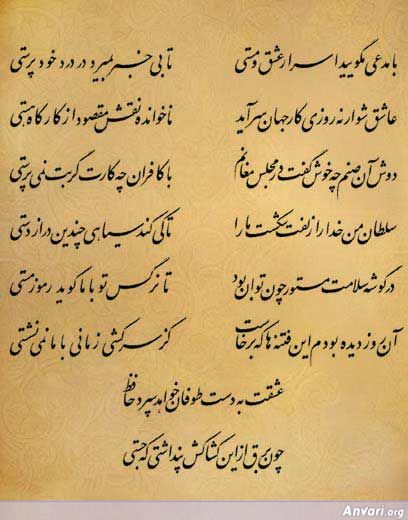 با مدعی مگویید اسرار عشق و مستی تا بی خبر بمیرد در درد خودپرستی
عاشق شو ار نه روزی کار جهان سر آید ناخوانده نقش مقصود از کارگاه هستی
دوش آن صنم چه خوش گفت در مجلس مغانم با کافران چه کارت گر بت نمی پرستی
سلطان من خدا را زلفت شکست ما را تا کی کند سیاهی چندین درازدستی
در گوشه سلامت مستور چون توان بود تا نرگس تو با ما گوید رموز مستی
آن روز دیده بودم این فتنه ها که برخاست کز سرکشی زمانی با ما نمی نشستی
عشقت به دست طوفان خواهد سپرد حافظ
چون برق از این کشاکش پنداشتی که جستی
Anvari.org